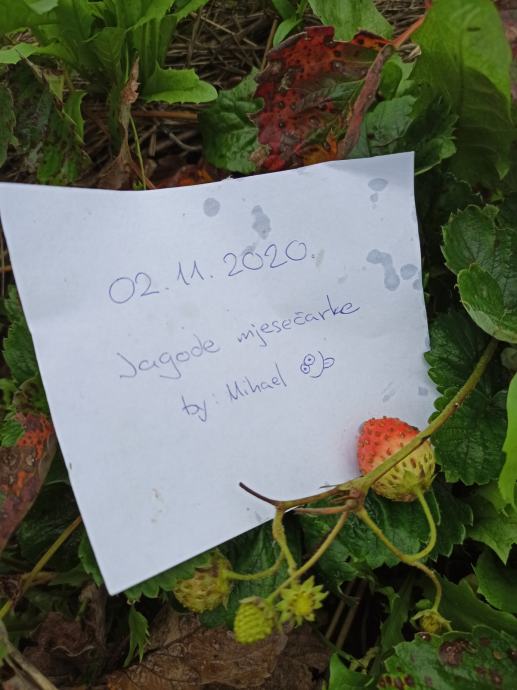 02.11.2020.
Jagode mjesečarke
by: Mihael